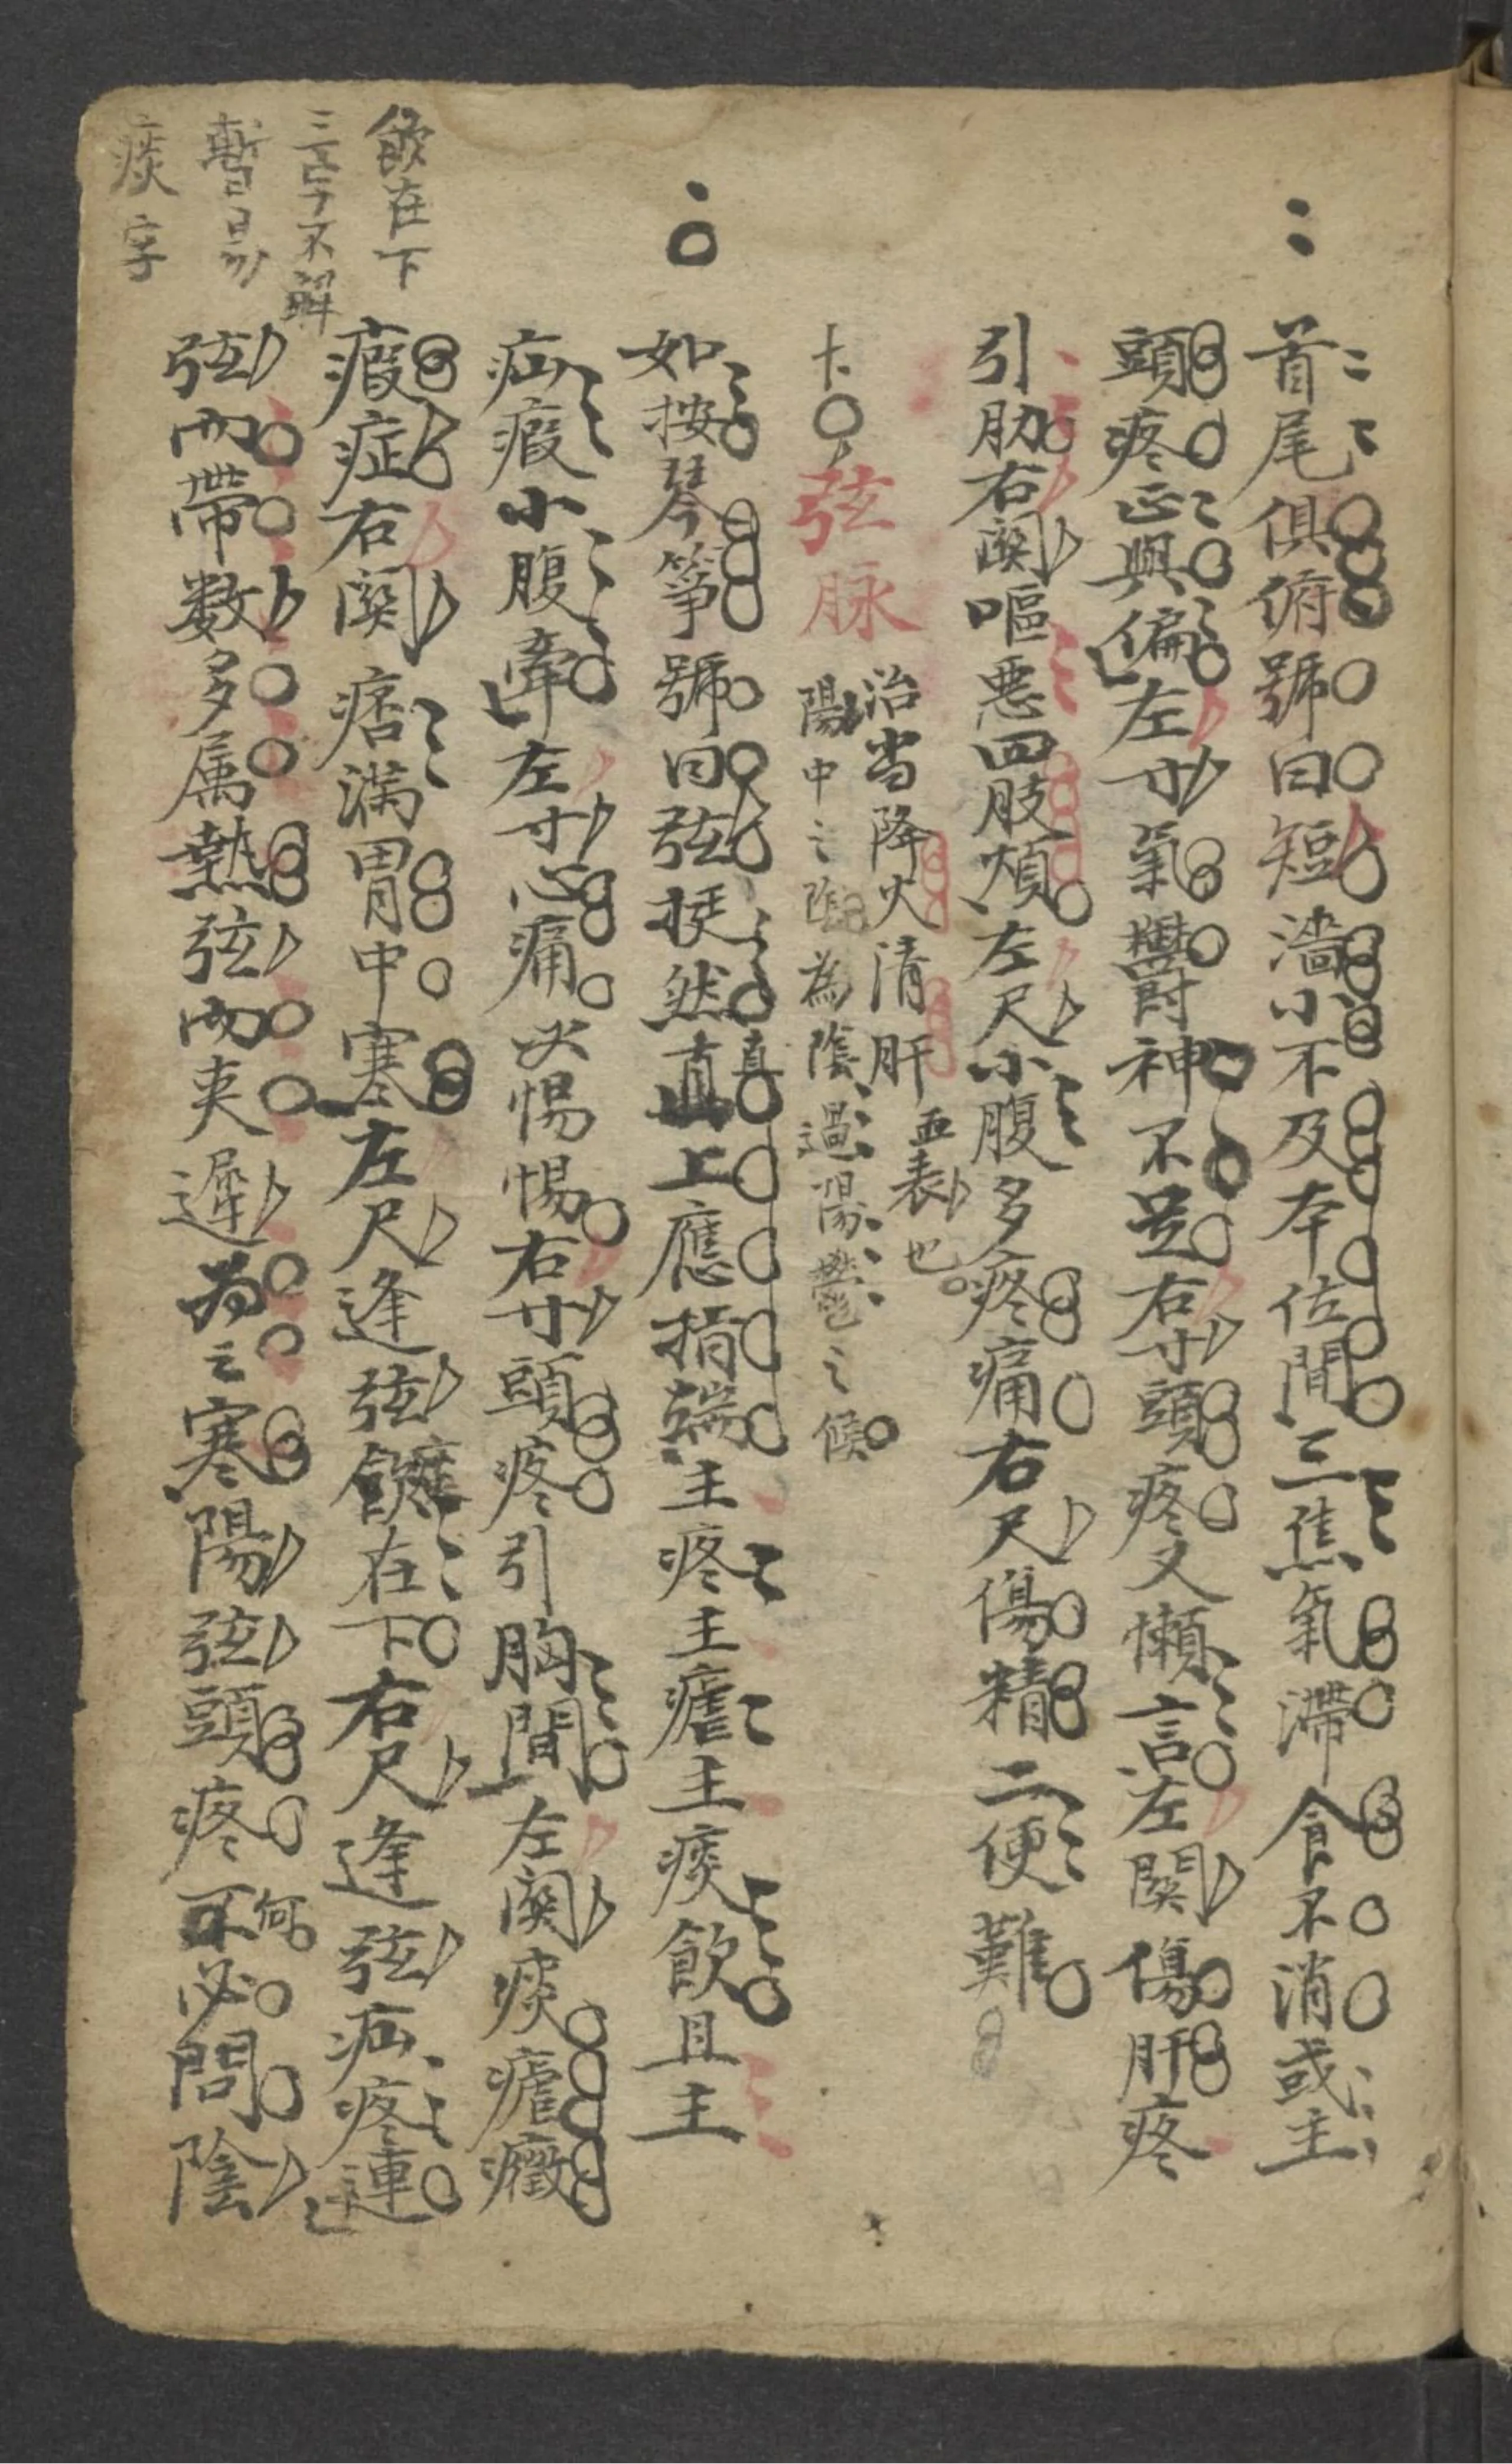 首尾俱俯號曰短濇小不及本位間三焦氣滯食不消或主
頭疼正與偏左寸氣欝神不足右寸頭疼又懶言左関傷肝疼
引肋右関嘔惡四肢煩左尺小腹多疼痛右尺傷精二便難
弦脉
治当降火清肝
陽中之陰為陰過陽鬱之候
如按琴箏號曰弦挺然直上應指端主疼主瘧主痰飲且主
真
疝瘕小腹牽左寸心痛必惕惕右寸頭疼引胸間左関痰瘧癥
瘕症右関痞滿胃中寒左尺逢弦飲在下右尺逢弦疝疼連
弦而帶数多属熱弦而夾遲為之寒陽弦頭疼不必問陰
何
飲在下
三字不解
暫易
痰字